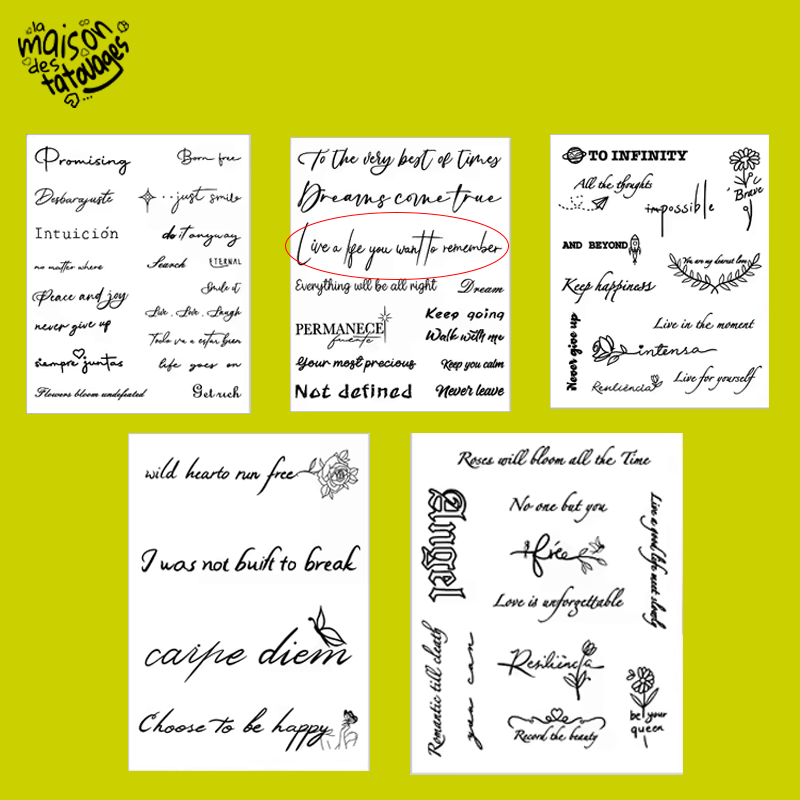 la
maison
des
tatouages
Promising
Born free
Desbarajuste
just smile
Intuición
do it anyway
no matter where
Search
ETERNAL
Peace and joy
Smile it
Live, Love, Laugh
never give up
Todo va a estar bien
siempre juntas
life goes on
Flowers bloom undefeated
Get rich
To the very best of times
Dreams come true
Live a life you want to remember
Everything will be all right
Dream
PERMANECE
fuerte
Keep going
Walk with me
Your most precious
Keep you calm
Not defined
Never leave
TO INFINITY
All the thoughts
impossible
Brave
AND BEYOND
You are my dearest love
Keep happiness
Never give up
Live in the moment
intensa
Resiliência
Live for yourself
wild hearto run free
I was not built to break
carpe diem
Choose To be happy
Roses will bloom all the Time
Angel
No one but you
free
Live a good life meet slowly
Love is unforgettable
Romantic till death
you can
Resiliência
Record the beauty
be your
queen